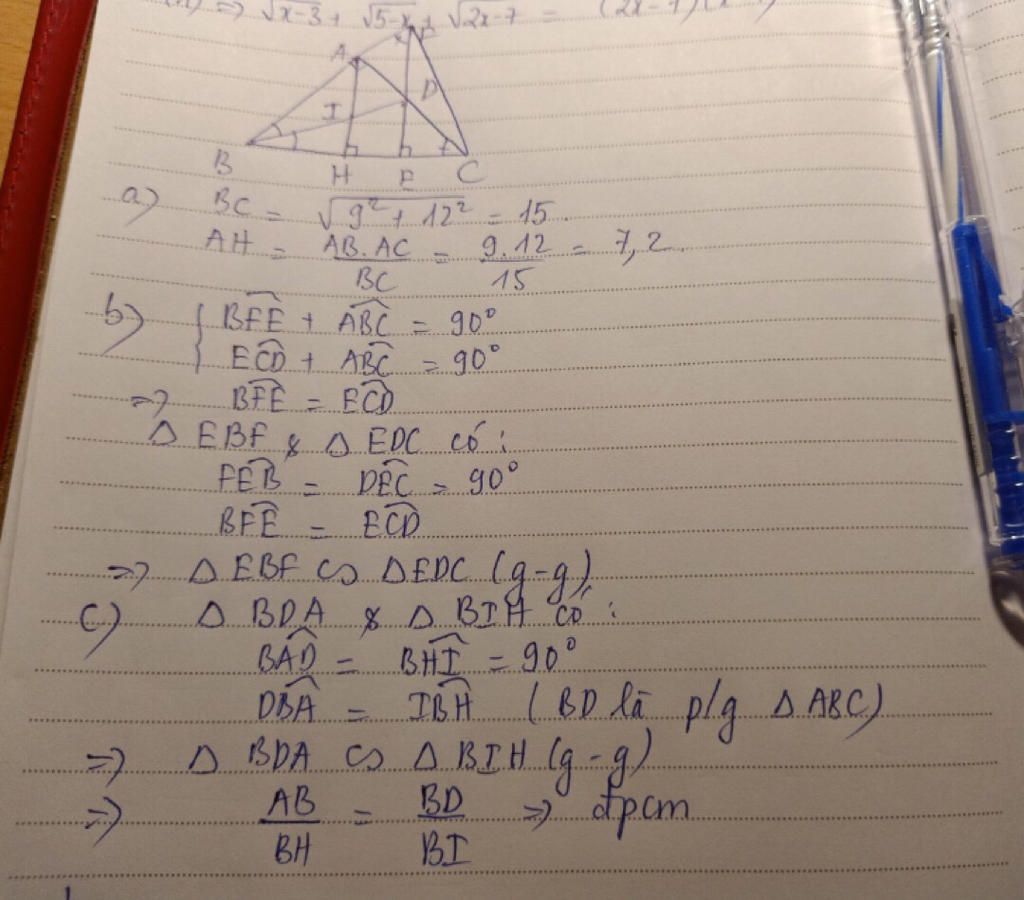 ⇒ √x-3 + √5-x + √2x-7 =
A
D
I
B
H E C
a) BC = √9² + 12² = 15.
AH = AB.AC / BC = 9.12 / 15 = 7,2.
b) { BFE + ABC = 90°
ECD + ABC = 90°
=> BFE = ECD
Δ EBF & Δ EDC có:
FEB = DEC = 90°
BFE = ECD
=> Δ EBF ∽ Δ EDC (g-g)
c) Δ BDA & Δ BIH có:
BAD = BHI = 90°
DBA = IBH ( BD là p/g Δ ABC)
=> Δ BDA ∽ Δ BIH (g-g)
=> AB / BH = BD / BI => đpcm